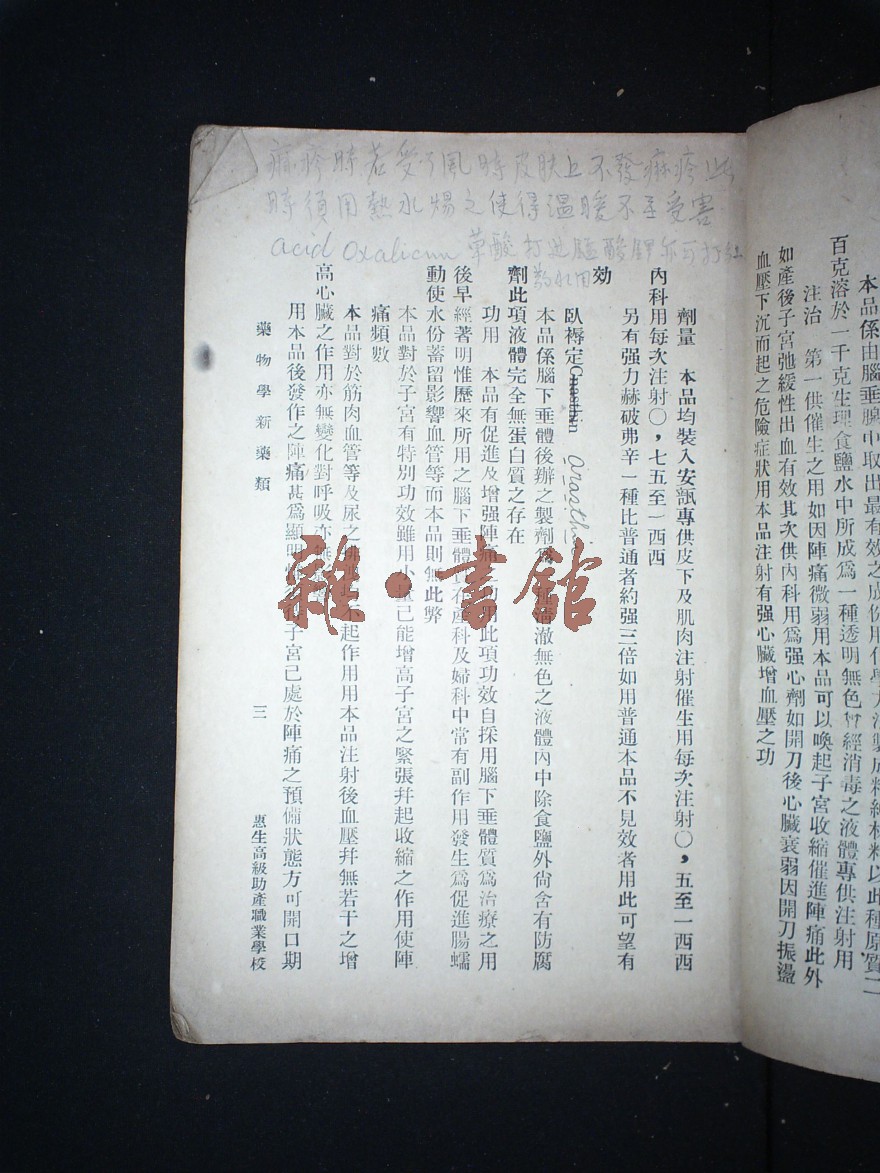 本品係由腦垂腺中取出最有效之成份用化學方法製成粉紅材料以此種原質二
百克溶於一千克生理食鹽水中所成爲一種透明無色曾經消毒之液體專供注射用
注治 第一供催生之用如因陣痛微弱用本品可以喚起子宮收縮催進陣痛此外
如產後子宮弛緩性出血有效其次供內科用爲强心劑如開刀後心臟衰弱因開刀振盪
血壓下沉而起之危險症狀用本品注射有强心臟增血壓之功
痳疹時若受了風時皮肤上不發痳疹此
時須用熱水燙之使得溫暖不至受害
acid oxalicum 草酸
劑量 本品均裝入安瓿專供皮下及肌肉注射催生用每次注射〇，五至一西西
內科用每次注射〇，七五至一西西
另有强力赫破弗辛一種比普通者約强三倍如用普通本品不見效者用此可望有
効
臥褥定 Orasthin
本品係腦下垂體後辦之製劑 澈無色之液體內中除食鹽外尙含有防腐
劑此項液體完全無蛋白質之存在
功用 本品有促進及增强陣痛 用此項功效自採用腦下垂體質爲治療之用
後早經著明惟歷來所用之腦下垂體 產科及婦科中常有副作用發生爲促進腸蠕
動使水份蓄留影響血管等而本品則無此弊
本品對於子宮有特別功效雖用小量己能增高子宮之緊張幷起收縮之作用使陣
痛頻數
本品對於筋肉血管等及尿之 不起作用用本品注射後血壓幷無若干之增
高心臟之作用亦無變化對呼吸亦無
用本品後發作之陣痛甚爲顯明 子宮己處於陣痛之預備狀態方可開口期
藥物學新藥類 三 惠生高級助產職業學校
雜·書館